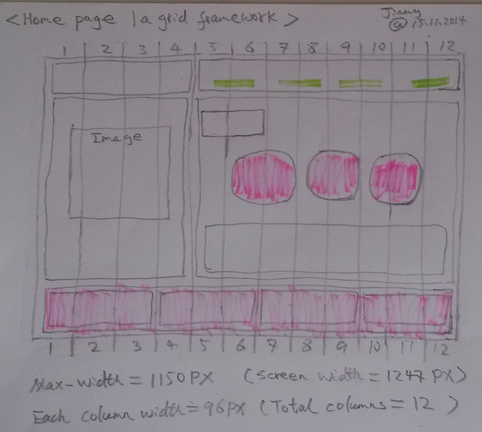 <Home page | a grid framework>
@ 15.11.2014
1 2 3 4 5 6 7 8 9 10 11 12
Image
1 2 3 4 5 6 7 8 9 10 11 12
Max-width = 1150 PX (Screen width = 1247 PX)
Each column width = 96 PX (Total columns = 12)